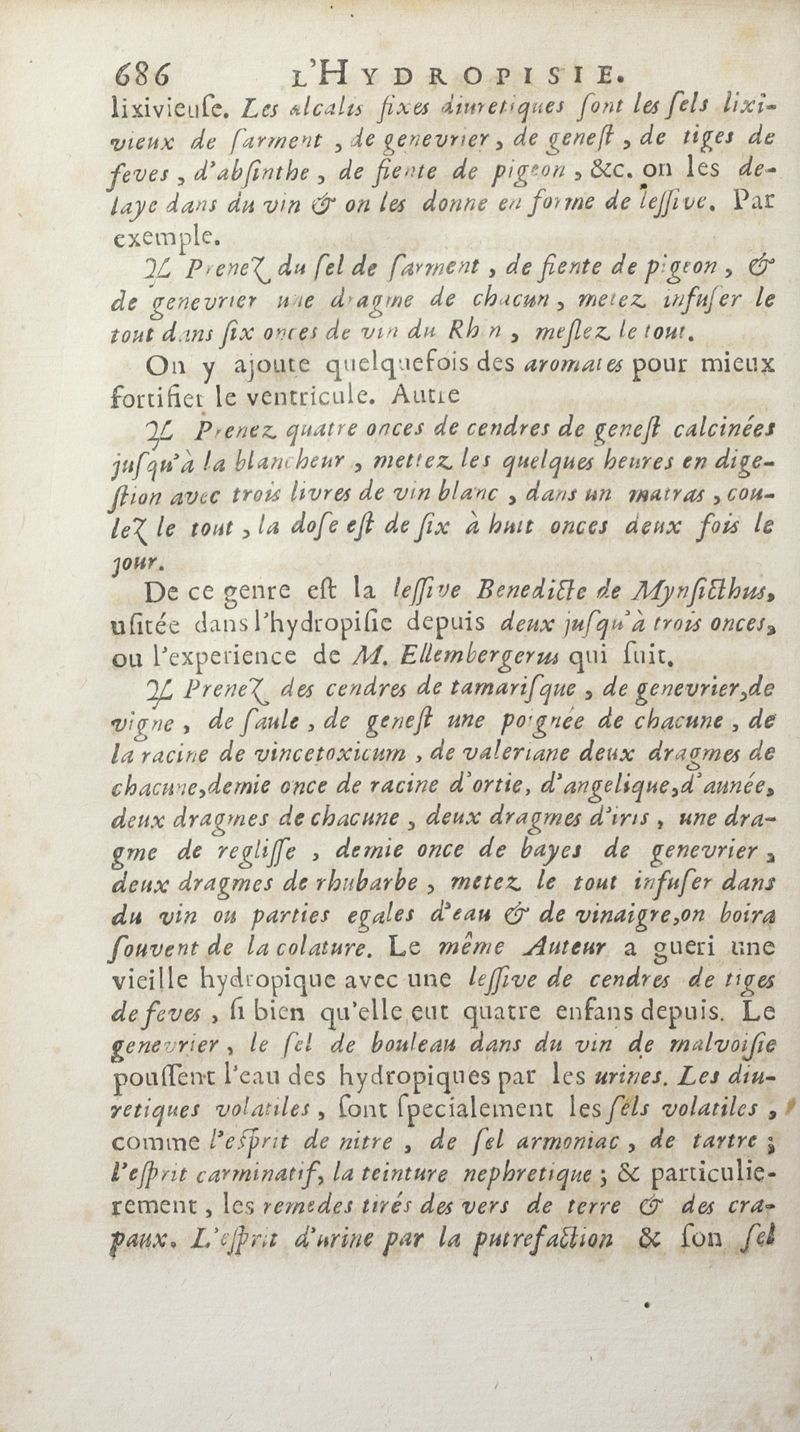 686 L'HYDROPISIE.
lixivieuſe. Les alcalis fixes diuretiques ſont les ſels lixi-
vieux de ſarment , de genevrier , de geneſt , de tiges de
feves , d'abſinthe , de fiente de pigeon , &c. on les de-
laye dans du vin & on les donne en forme de leſſive. Par
exemple.
℞ Prenez du ſel de ſarment , de fiente de pigeon , &
de genevrier une dragme de chacun , metez infuſer le
tout dans ſix onces de vin du Rhin , meſlez le tout.
On y ajoute quelquefois des aromates pour mieux
fortifier le ventricule. Autre
℞ Prenez quatre onces de cendres de geneſt calcinées
juſqu'à la blancheur , mettez les quelques heures en dige-
ſtion avec trois livres de vin blanc , dans un matras , cou-
lez le tout , la doſe eſt de ſix à huit onces deux fois le
jour.
De ce genre eſt la leſſive Benedicte de Mynſicthus,
uſitée dans l'hydropiſie depuis deux juſqu'à trois onces,
ou l'experience de M. Ellembergerus qui ſuit.
℞ Prenez des cendres de tamariſque , de genevrier,de
vigne , de ſaule , de geneſt une poignée de chacune , de
la racine de vincetoxicum , de valeriane deux dragmes de
chacune,demie once de racine d'ortie, d'angelique,d'aunée,
deux dragmes de chacune , deux dragmes d'iris , une dra-
gme de regliſſe , demie once de bayes de genevrier ,
deux dragmes de rhubarbe , metez le tout infuſer dans
du vin ou parties egales d'eau & de vinaigre,on boira
ſouvent de la colature. Le même Auteur a gueri une
vieille hydropique avec une leſſive de cendres de tiges
de feves , ſi bien qu'elle eut quatre enfans depuis. Le
genevrier , le ſel de bouleau dans du vin de malvoiſie
pouſſent l'eau des hydropiques par les urines. Les diu-
retiques volatiles , ſont ſpecialement les ſels volatiles ,
comme l'eſprit de nitre , de ſel armoniac , de tartre ;
l'eſprit carminatif, la teinture nephretique ; & particulie-
rement , les remedes tirés des vers de terre & des cra-
paux. L'eſprit d'urine par la putrefaction & ſon ſel